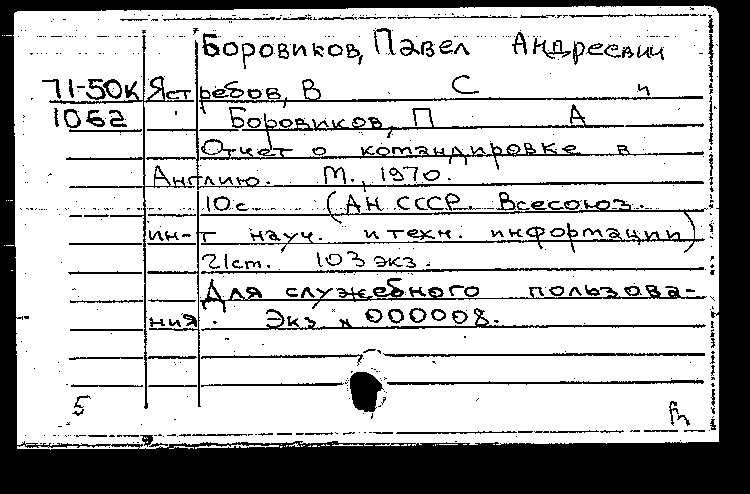 Боровиков, Павел Андреевич
71-50к Ястребов, В С и
1062 Боровиков, П А
Отчет о командировке в
Англию. М., 1970.
10с. (АН СССР. Всесоюз.
ин-т науч. и техн. информации)
21см. 103 экз.
Для служебного пользова-
ния. Экз N 000008.
5